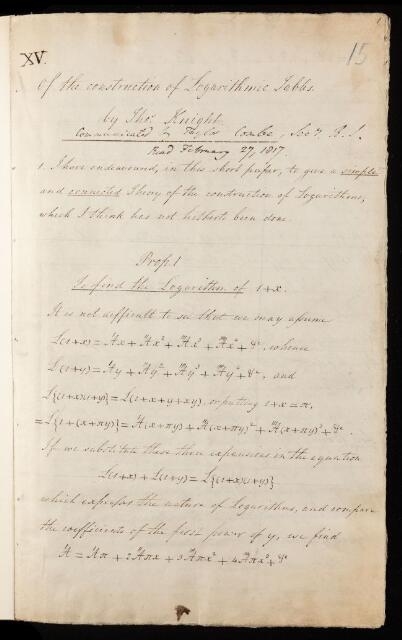 XV.
15
Of the construction of Logarithmic Tables.
by Thos. Knight.
Communicated by Taylor Combe, Secy. R. S.
Read February 27, 1817.
1. I have endeavoured, in this short paper, to give a simple
and connected theory of the construction of Logarithms,
which I think has not hitherto been done.
Prop. 1
To find the Logarithm of 1+x.
It is not difficult to see that we may assume
L(1+x) = 'Ax + "Ax² + '''Ax³ + ''''Ax⁴ + &c, whence
L(1+y) = 'Ay + "Ay² + '''Ay³ + ''''Ay⁴ + &c, and
L{(1+x)(1+y)} = L(1+x+y+xy), or putting 1+x = π,
= L{1+(x+πy)} = 'A(x+πy) + "A(x+πy)² + '''A(x+πy)³ + &c.
If we substitute these three expansions in the equation
L(1+x) + L(1+y) = L{(1+x)(1+y)}
which expresses the nature of Logarithms, and compare
the coefficients of the first power of y, we find
'A = 'Aπ + 2"Aπx + 3'''Aπx² + 4''''Aπx³ + &c